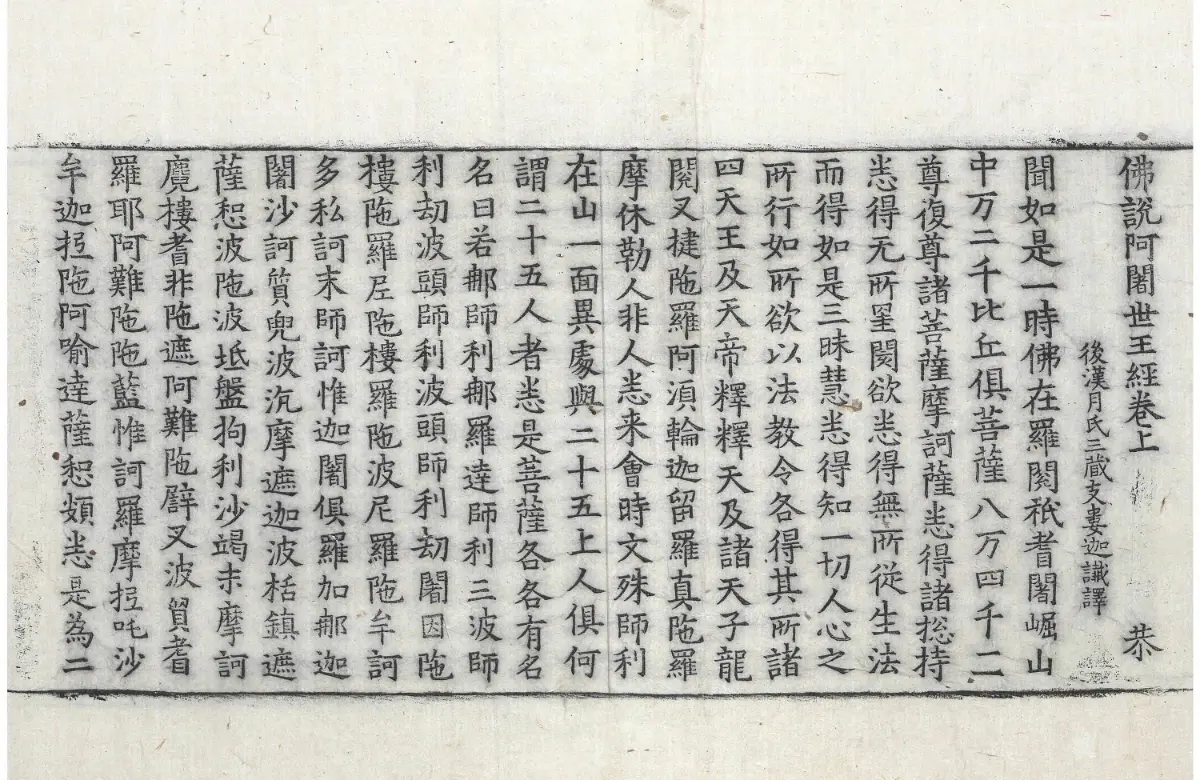 佛說阿闍世王經卷上
恭
後漢月氏三藏支婁迦讖譯
聞如是一時佛在羅閱祇耆闍崛山
中万二千比丘俱菩薩八万四千二
尊復尊諸菩薩摩訶薩悉得諸揔持
悉得无所罣閡欲悉得無所從生法
而得如是三昧慧悉得知一切人心之
所行如所欲以法教令各得其所諸
四天王及天帝釋釋天及諸天子龍
閱叉揵陁羅阿湏輪迦留羅真陁羅
摩休勒人非人悉来會時文殊師利
在山一面異處與二十五上人俱何
謂二十五人者悉是菩薩各各有名
名曰若那師利那羅達師利三波師
利劫波頭師利波頭師利劫闍因陁
樓陁羅尼陁樓羅陁波尼羅陁牟訶
多私訶末師訶惟迦闍俱羅加那迦
闍沙訶質兜波沉摩遮迦波栝鎮遮
薩惒波陁波坻盤拘利沙竭末摩訶
麑樓耆非陁遮阿難陁譬叉波貿耆
羅耶阿難陁陁藍惟訶羅摩抳吒沙
牟迦抳陁阿喻達薩惒頞悉是為二